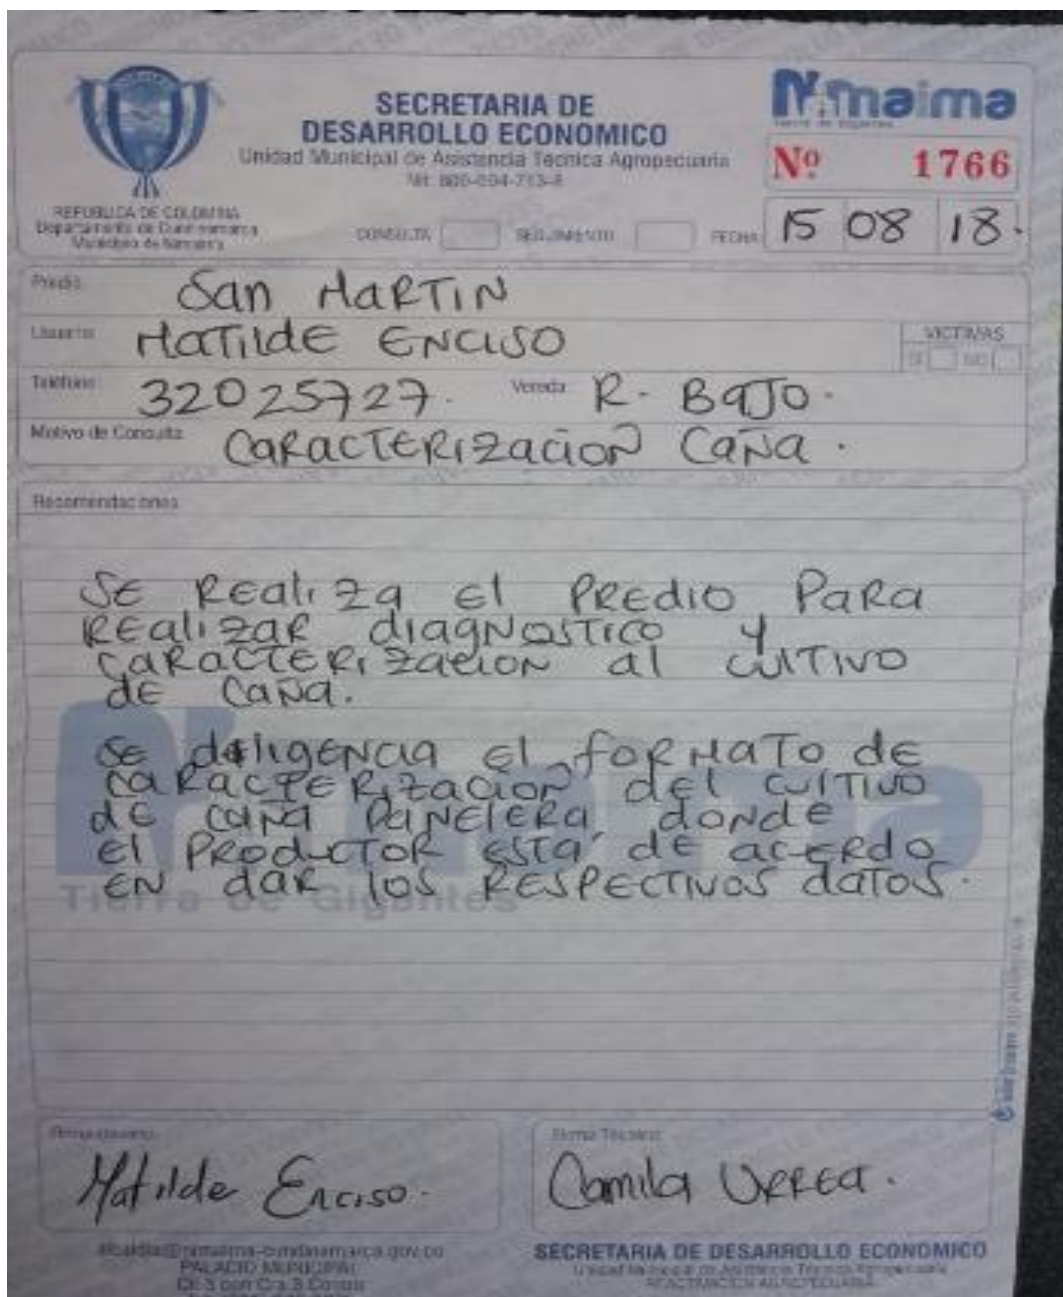 SECRETARIA DE
DESARROLLO ECONOMICO
Unidad Municipal de Asistencia Técnica Agropecuaria
Nimaima
Tierra de Gigantes
Nº 1766
REPUBLICA DE COLOMBIA
Departamento de Cundinamarca
Municipio de Nimaima
CONSULTA SEGUIMIENTO FECHA: 15 08 18.
Predio: San MARTIN
Usuario: MATILDE ENCISO
VICTIMAS
SI NO
Teléfono: 32025727. Vereda: R. BAJO.
Motivo de Consulta: CARACTERIZACION CAÑA.
Recomendaciones
SE REALIZA El PREDIO PARA
REALIZAR diAGNOSTICO y
CARACTERIZACION al CULTIVO
dE CAÑA.
SE diligENCIA El FORMATO dE
CARACTERIZACION dEl CULTIVO
dE CAÑA PANELERA, dONdE
El PROdUCTOR ESTA dE ACUERdO
EN dAR lOS RESPECTIVOS dATOS.
Nimaima
Tierra de Gigantes
Firma Usuario: Matilde Enciso.
Firma Técnico: Camila URREA.
alcaldia@nimaima-cundinamarca.gov.co
PALACIO MUNICIPAL
SECRETARIA DE DESARROLLO ECONOMICO
Unidad Municipal de Asistencia Técnica Agropecuaria
REACTIVACION AGROPECUARIA